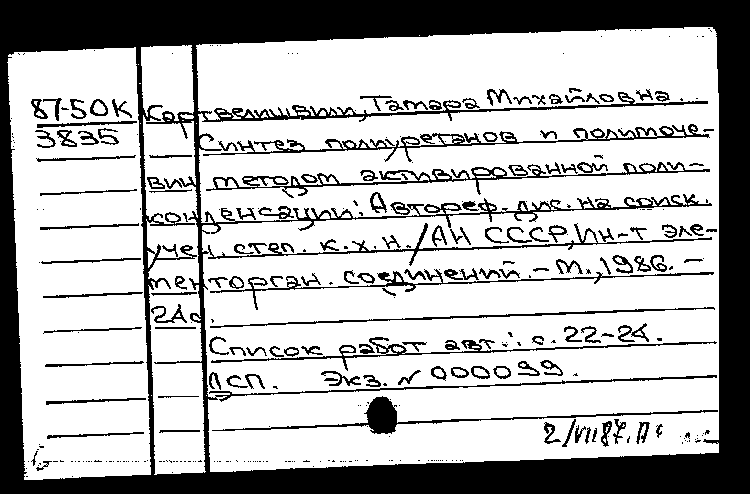 87-50К Картвелишвили, Тамара Михайловна.
3835 Синтез полиуретанов и полимоче-
вин методом активированной поли-
конденсации: Автореф. дис. на соиск.
учен. степ. к.х.н. / АН СССР, Ин-т эле-
менторган. соединений. - М., 1986. -
24с.
Список работ авт.: с. 22-24.
ДСП. Экз. № 000099.
2/VII 87.